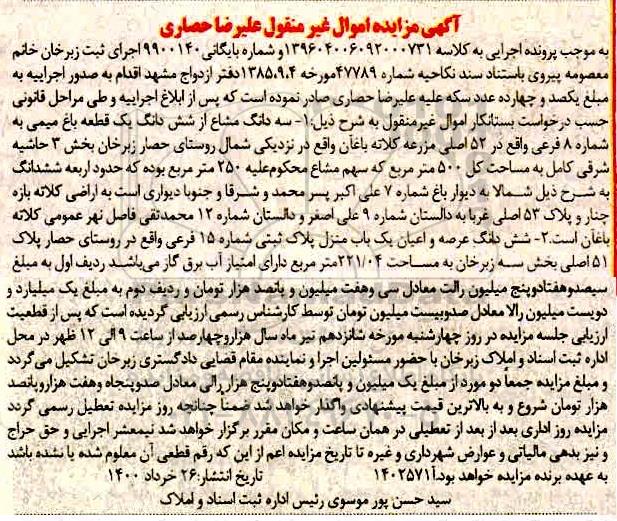 آگهی مزایده اموال غیر منقول علیرضا حصاری
به موجب پرونده اجرایی به کلاسه ۱۳۹۶۰۴۰۰۶۰۹۲۰۰۰۷۳۱و شماره بایگانی۹۹۰۰۱۴۰ اجرای ثبت زبرخان خانم
معصومه پیروی باستناد سند نکاحیه شماره ۴۷۷۸۹مورخه ۱۳۸۵،۹،۴دفتر ازدواج مشهد اقدام به صدور اجراییه به
مبلغ یکصد و چهارده عدد سکه علیه علیرضا حصاری صادر نموده است که پس از ابلاغ اجراییه و طی مراحل قانونی
حسب درخواست بستانکار اموال غیرمنقول به شرح ذیل:۱- سه دانگ مشاع از شش دانگ یک قطعه باغ میمی به
شماره ۸ فرعی واقع در ۵۲ اصلی مزرعه کلاته باغان واقع در نزدیکی شمال روستای حصار زبرخان بخش ۳ حاشیه
شرقی کامل به مساحت کل ۵۰۰ متر مربع که سهم مشاع محکوم‌علیه ۲۵۰ متر مربع بوده که حدود اربعه ششدانگ
به شرح ذیل شمالا به دیوار باغ شماره ۷ علی اکبر پسر محمد و شرقا و جنوبا دیواری است به اراضی کلاته بازه
چنار و پلاک ۵۳ اصلی غربا به دالستان شماره ۹ علی اصغر و دالستان شماره ۱۲ محمدتقی فاصل نهر عمومی کلاته
باغان است.۲- شش دانگ عرصه و اعیان یک باب منزل پلاک ثبتی شماره ۱۵ فرعی واقع در روستای حصار پلاک
۵۱اصلی بخش سه زبرخان به مساحت ۲۲۱/۰۴متر مربع دارای امتیاز آب برق گاز می‌باشد ردیف اول به مبلغ
سیصدوهفتادوپنج میلیون رالت معادل سی وهفت میلیون و پانصد هزار تومان و ردیف دوم به مبلغ یک میلیارد و
دویست میلیون رالا معادل صدوبیست میلیون تومان توسط کارشناس رسمی ارزیابی گردیده است که پس از قطعیت
ارزیابی جلسه مزایده در روز چهارشنبه مورخه شانزدهم تیر ماه سال هزاروچهارصد از ساعت ۹ الی ۱۲ ظهر در محل
اداره ثبت اسناد و املاک زبرخان با حضور مسئولین اجرا و نماینده مقام قضایی دادگستری زبرخان تشکیل می‌گردد
و مبلغ مزایده جمعاً دو مورد از مبلغ یک میلیون و پانصدوهفتادوپنج هزار رالی معادل صدوپنجاه وهفت هزاروپانصد
هزار تومان شروع و به بالاترین قیمت پیشنهادی واگذار خواهد شد ضمناً چنانچه روز مزایده تعطیل رسمی گردد
مزایده روز اداری بعد از بعد از تعطیلی در همان ساعت و مکان مقرر برگزار خواهد شد نیمعشر اجرایی و حق حراج
و نیز بدهی مالیاتی و عوارض شهرداری و غیره تا تاریخ مزایده اعم از این که رقم قطعی آن معلوم شده یا نشده باشد
به عهده برنده مزایده خواهد بود.آ۱۴۰۲۵۷۱ تاریخ انتشار:۲۶ خرداد ۱۴۰۰
سید حسن پور موسوی رئیس اداره ثبت اسناد و املاک